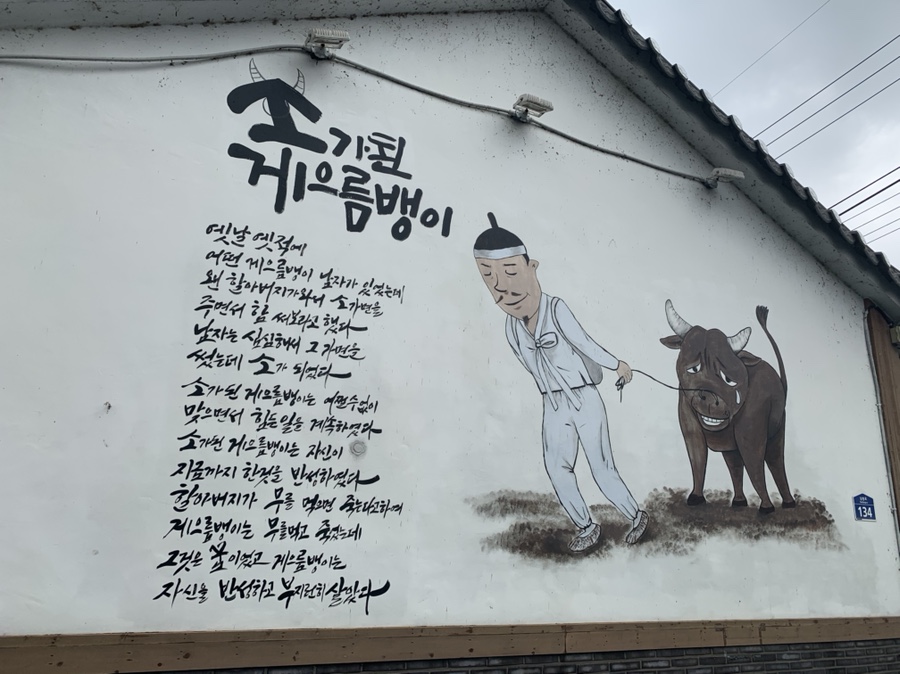 소가된
게으름뱅이
옛날 옛적에
어떤 게으름뱅이 남자가 있었는데
왠 할아버지가와서 소가면을
주면서 함 써보라고 했다
남자는 심심해서 그가면을
썼는데 소가 되었다
소가된 게으름뱅이는 어쩐수없이
맞으면서 힘든일을 계속하였다
소가된 게으름뱅이는 자신이
지금까지 한것을 반성하였다
할아버지가 무를 먹으면 죽는다고하여
게으름뱅이는 무를먹고 죽었는데
그것은 꿈이였고 게으름뱅이는
자신을 반성하고 부지런히살았다
134